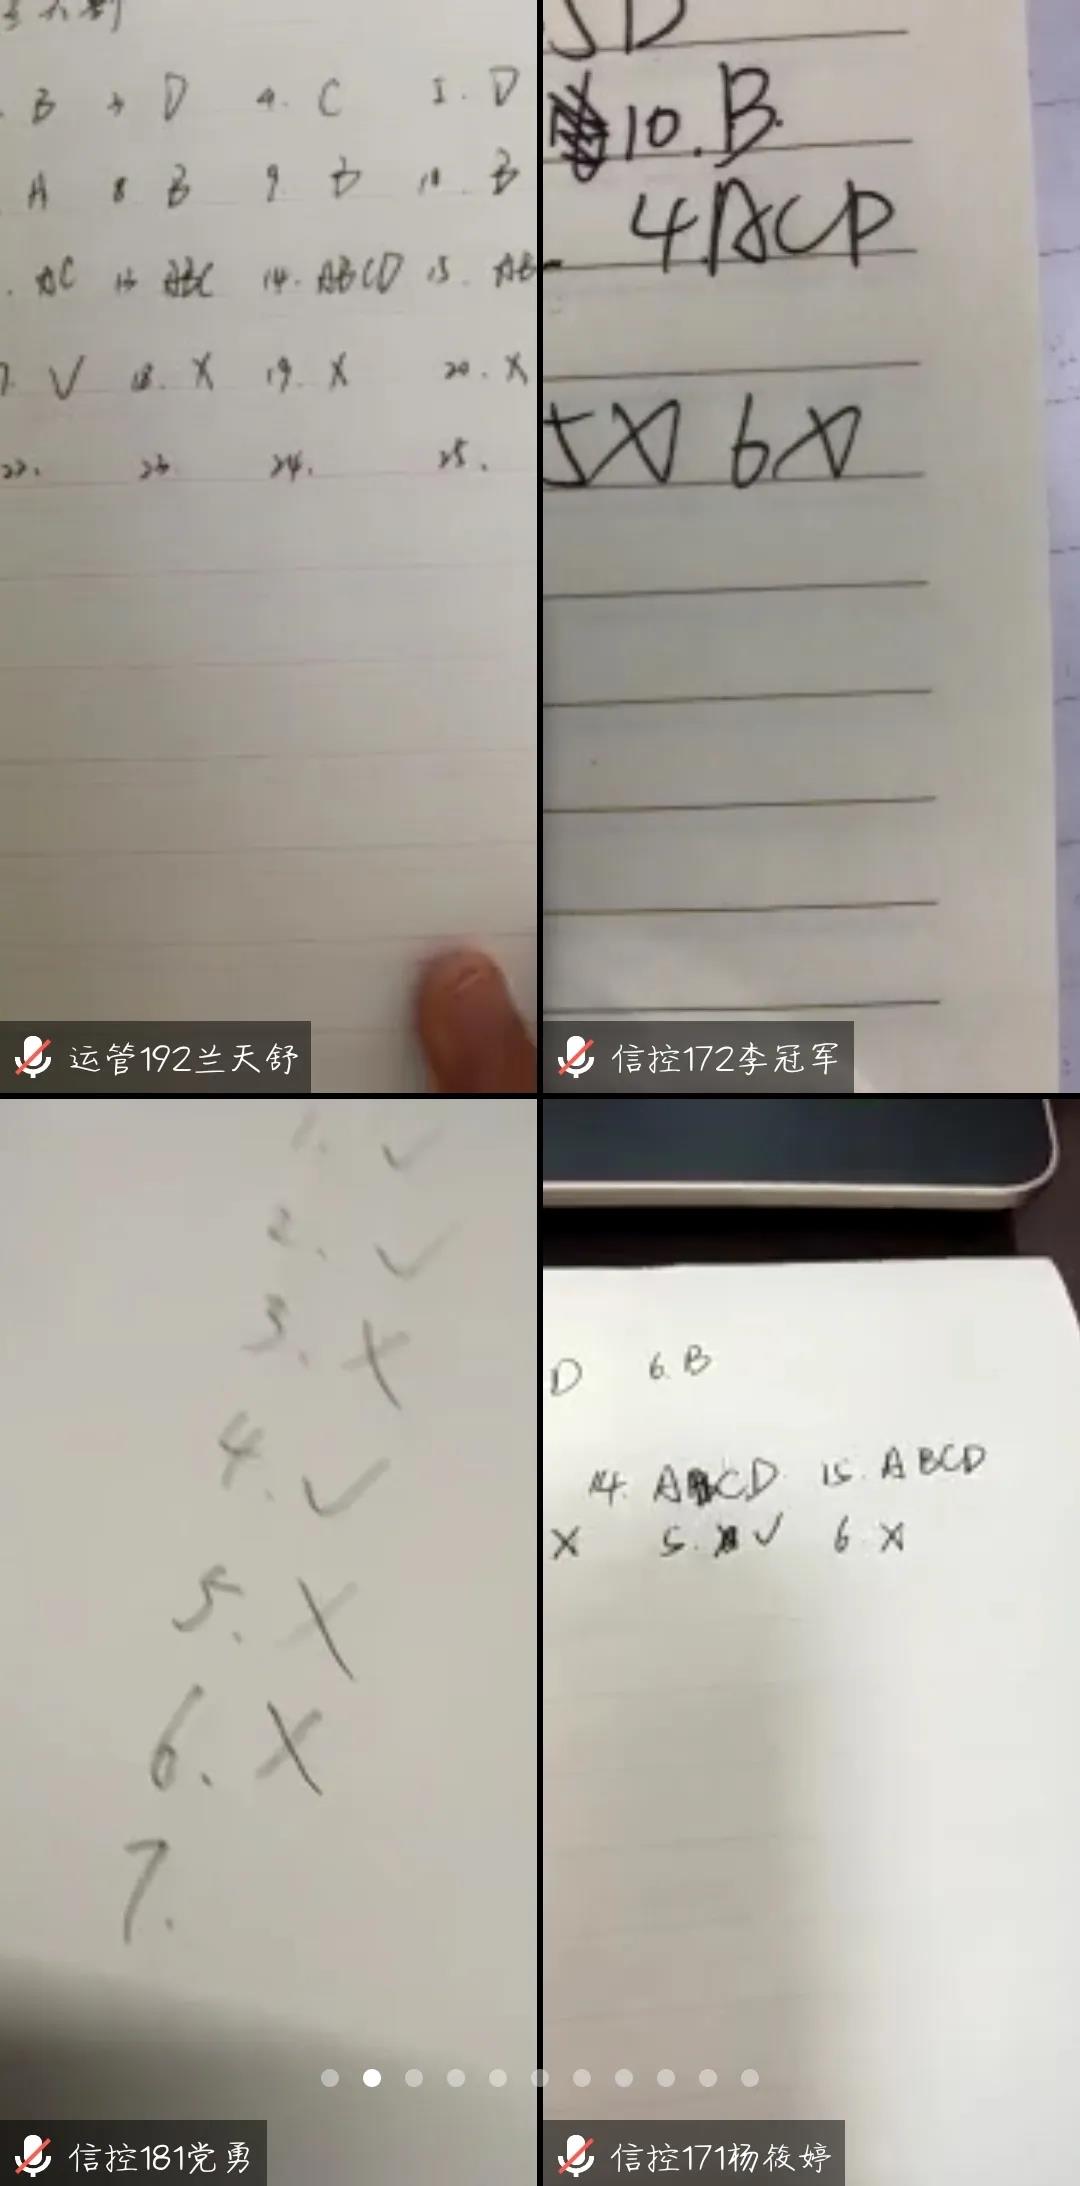 . B 3 D 4. C 5. D
A 8 B 9. B 10. B
. AC 13 ABC 14. ABCD 15. AB
7. √ 18. X 19. X 20. X
22. 23. 24. 25.
运管192兰天舒
5D
10.B.
4.ACD
5X 6X
信控172李冠军
1. √
2. √
3. X
4. √
5. X
6. X
7.
信控181党勇
D 6.B
14. ABCD 15. ABCD
X 5. √ 6. X
信控171杨筱婷